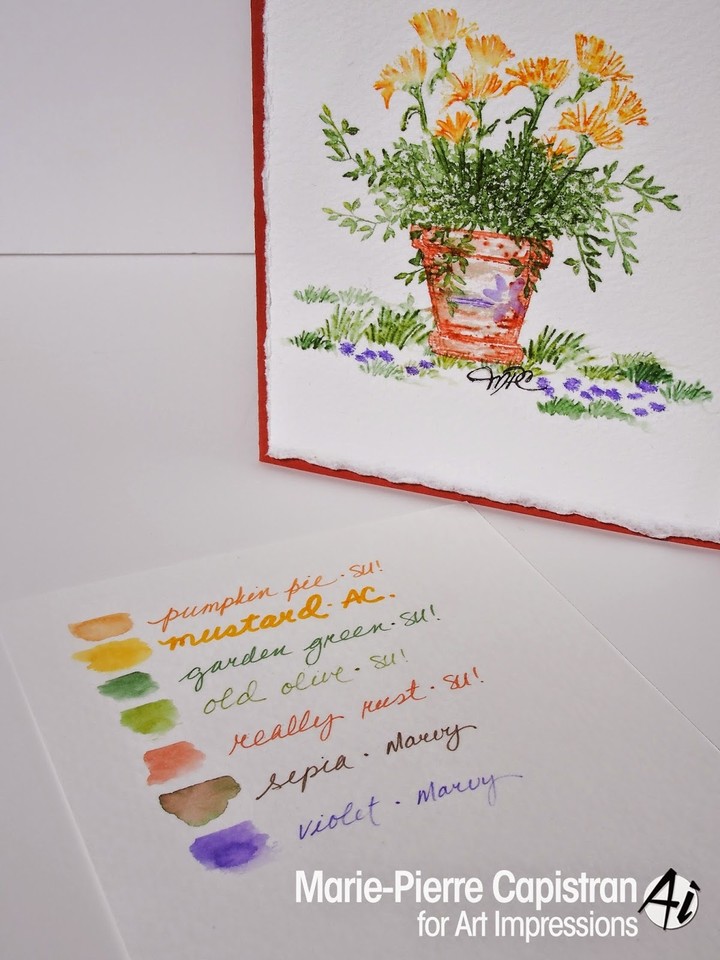 pumpkin pie · SU!
mustard · AC.
garden green · SU!
old olive · SU!
really rust · SU!
sepia · Marvy
violet · Marvy
Marie-Pierre Capistran
for Art Impressions
Ai